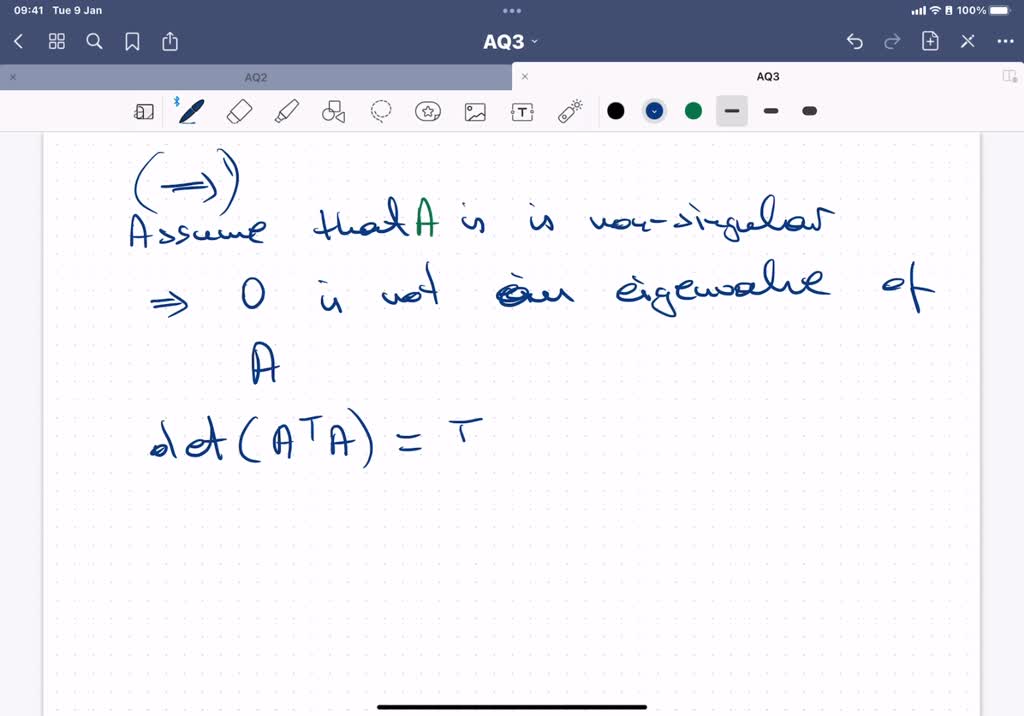 09:41 Tue 9 Jan 100%
AQ3
AQ2 AQ3
(⟹)
Assume that A is is non-singular
⟹ 0 is not an eigenvalue of
A
det(AᵀA) = T